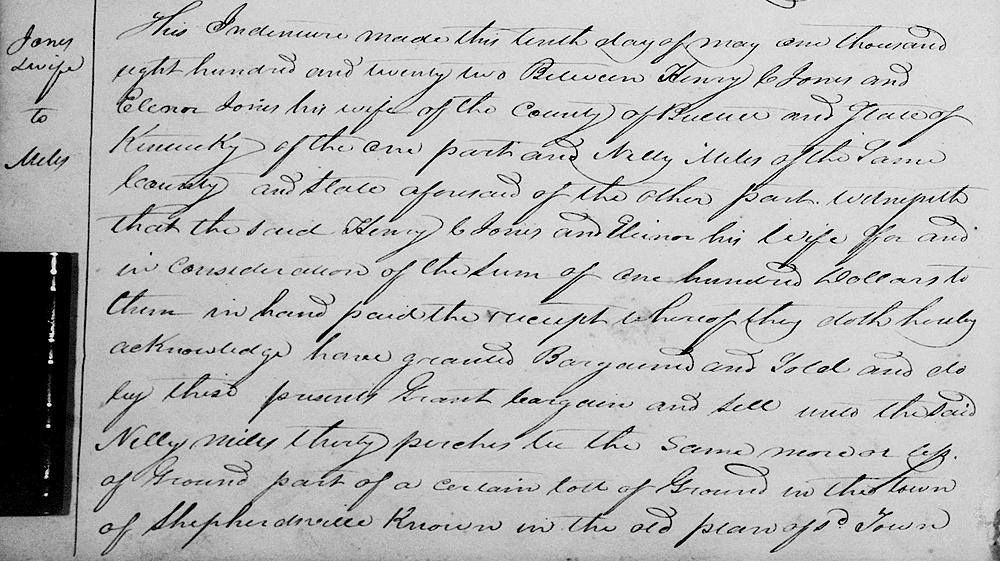 Jones
& wife
to
Miles
This Indenture made this tenth day of may one thousand
eight hundred and twenty two Between Henry C Jones and
Elenor Jones his wife of the County of and State of
Kentucky of the one part and Nelly Miles of the Same
County and State aforesaid of the other part. witnesseth
that the said Henry C Jones and Elenor his Wife for and
in Consideration of the Sum of one hundred Dollars to
them in hand paid the receipt whereof they doth hereby
acknowledge have granted Bargained and Sold and do
by these presents Grant bargain and Sell unto the said
Nelly Miles thirty perches be the Same more or less.
of Ground part of a certain lott of Ground in the town
of Shepherdsville Known in the old plan of sd. Town